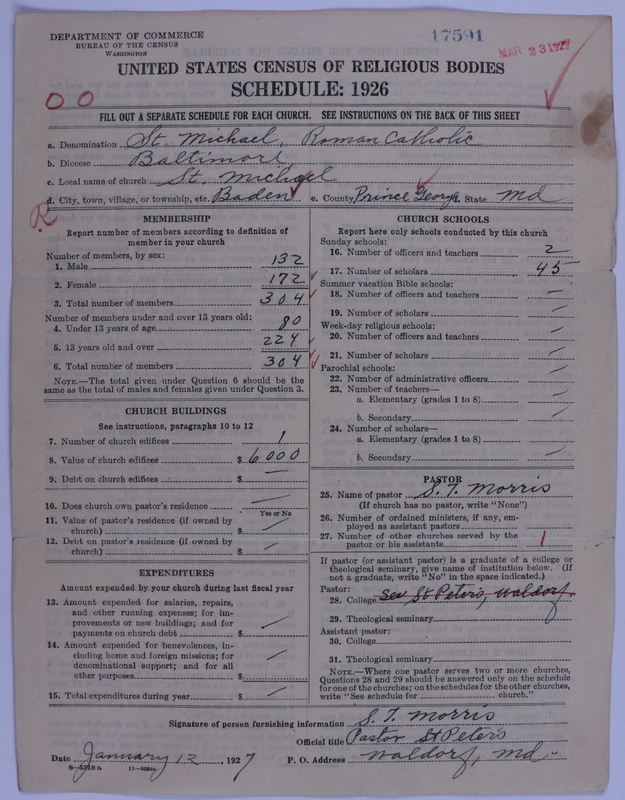 DEPARTMENT OF COMMERCE
BUREAU OF THE CENSUS
WASHINGTON
17591
MAR 23 1927
UNITED STATES CENSUS OF RELIGIOUS BODIES
SCHEDULE: 1926
O O
FILL OUT A SEPARATE SCHEDULE FOR EACH CHURCH. SEE INSTRUCTIONS ON THE BACK OF THIS SHEET
a. Denomination St. Michael, Roman Catholic
b. Diocese Baltimore
c. Local name of church St. Michael
d. City, town, village, or township, etc. Baden e. County Prince George f. State Md
R
MEMBERSHIP
Report number of members according to definition of
member in your church
Number of members, by sex:
1. Male 132
2. Female 172
3. Total number of members 304
Number of members under and over 13 years old:
4. Under 13 years of age 80
5. 13 years old and over 224
6. Total number of members 304
NOTE.—The total given under Question 6 should be the
same as the total of males and females given under Question 3.
CHURCH BUILDINGS
See instructions, paragraphs 10 to 12
7. Number of church edifices 1
8. Value of church edifices $ 6000
9. Debt on church edifices $ —
10. Does church own pastor's residence —
Yes or No
11. Value of pastor's residence (if owned by
church) $ —
12. Debt on pastor's residence (if owned by
church) $ —
EXPENDITURES
Amount expended by your church during last fiscal year
13. Amount expended for salaries, repairs,
and other running expenses; for im-
provements or new buildings; and for
payments on church debt —
14. Amount expended for benevolences, in-
cluding home and foreign missions; for
denominational support; and for all
other purposes $ —
15. Total expenditures during year $ —
CHURCH SCHOOLS
Report here only schools conducted by this church
Sunday schools:
16. Number of officers and teachers 2
17. Number of scholars 45
Summer vacation Bible schools:
18. Number of officers and teachers —
19. Number of scholars —
Week-day religious schools:
20. Number of officers and teachers —
21. Number of scholars —
Parochial schools:
22. Number of administrative officers —
23. Number of teachers—
a. Elementary (grades 1 to 8) —
b. Secondary —
24. Number of scholars—
a. Elementary (grades 1 to 8) —
b. Secondary —
PASTOR
25. Name of pastor S. T. Morris
(If church has no pastor, write "None")
26. Number of ordained ministers, if any, em-
ployed as assistant pastors
27. Number of other churches served by the
pastor or his assistants 1
If pastor (or assistant pastor) is a graduate of a college or
theological seminary, give name of institution below. (If
not a graduate, write "No" in the space indicated.)
Pastor:
28. College See St Peters, Waldorf
29. Theological seminary
Assistant pastor:
30. College
31. Theological seminary
NOTE.—Where one pastor serves two or more churches,
Questions 28 and 29 should be answered only on the schedule
for one of the churches; on the schedules for the other churches,
write "See schedule for church."
Signature of person furnishing information S. T. Morris
Official title Pastor St Peters
Date January 12, 1927 P. O. Address Waldorf, Md